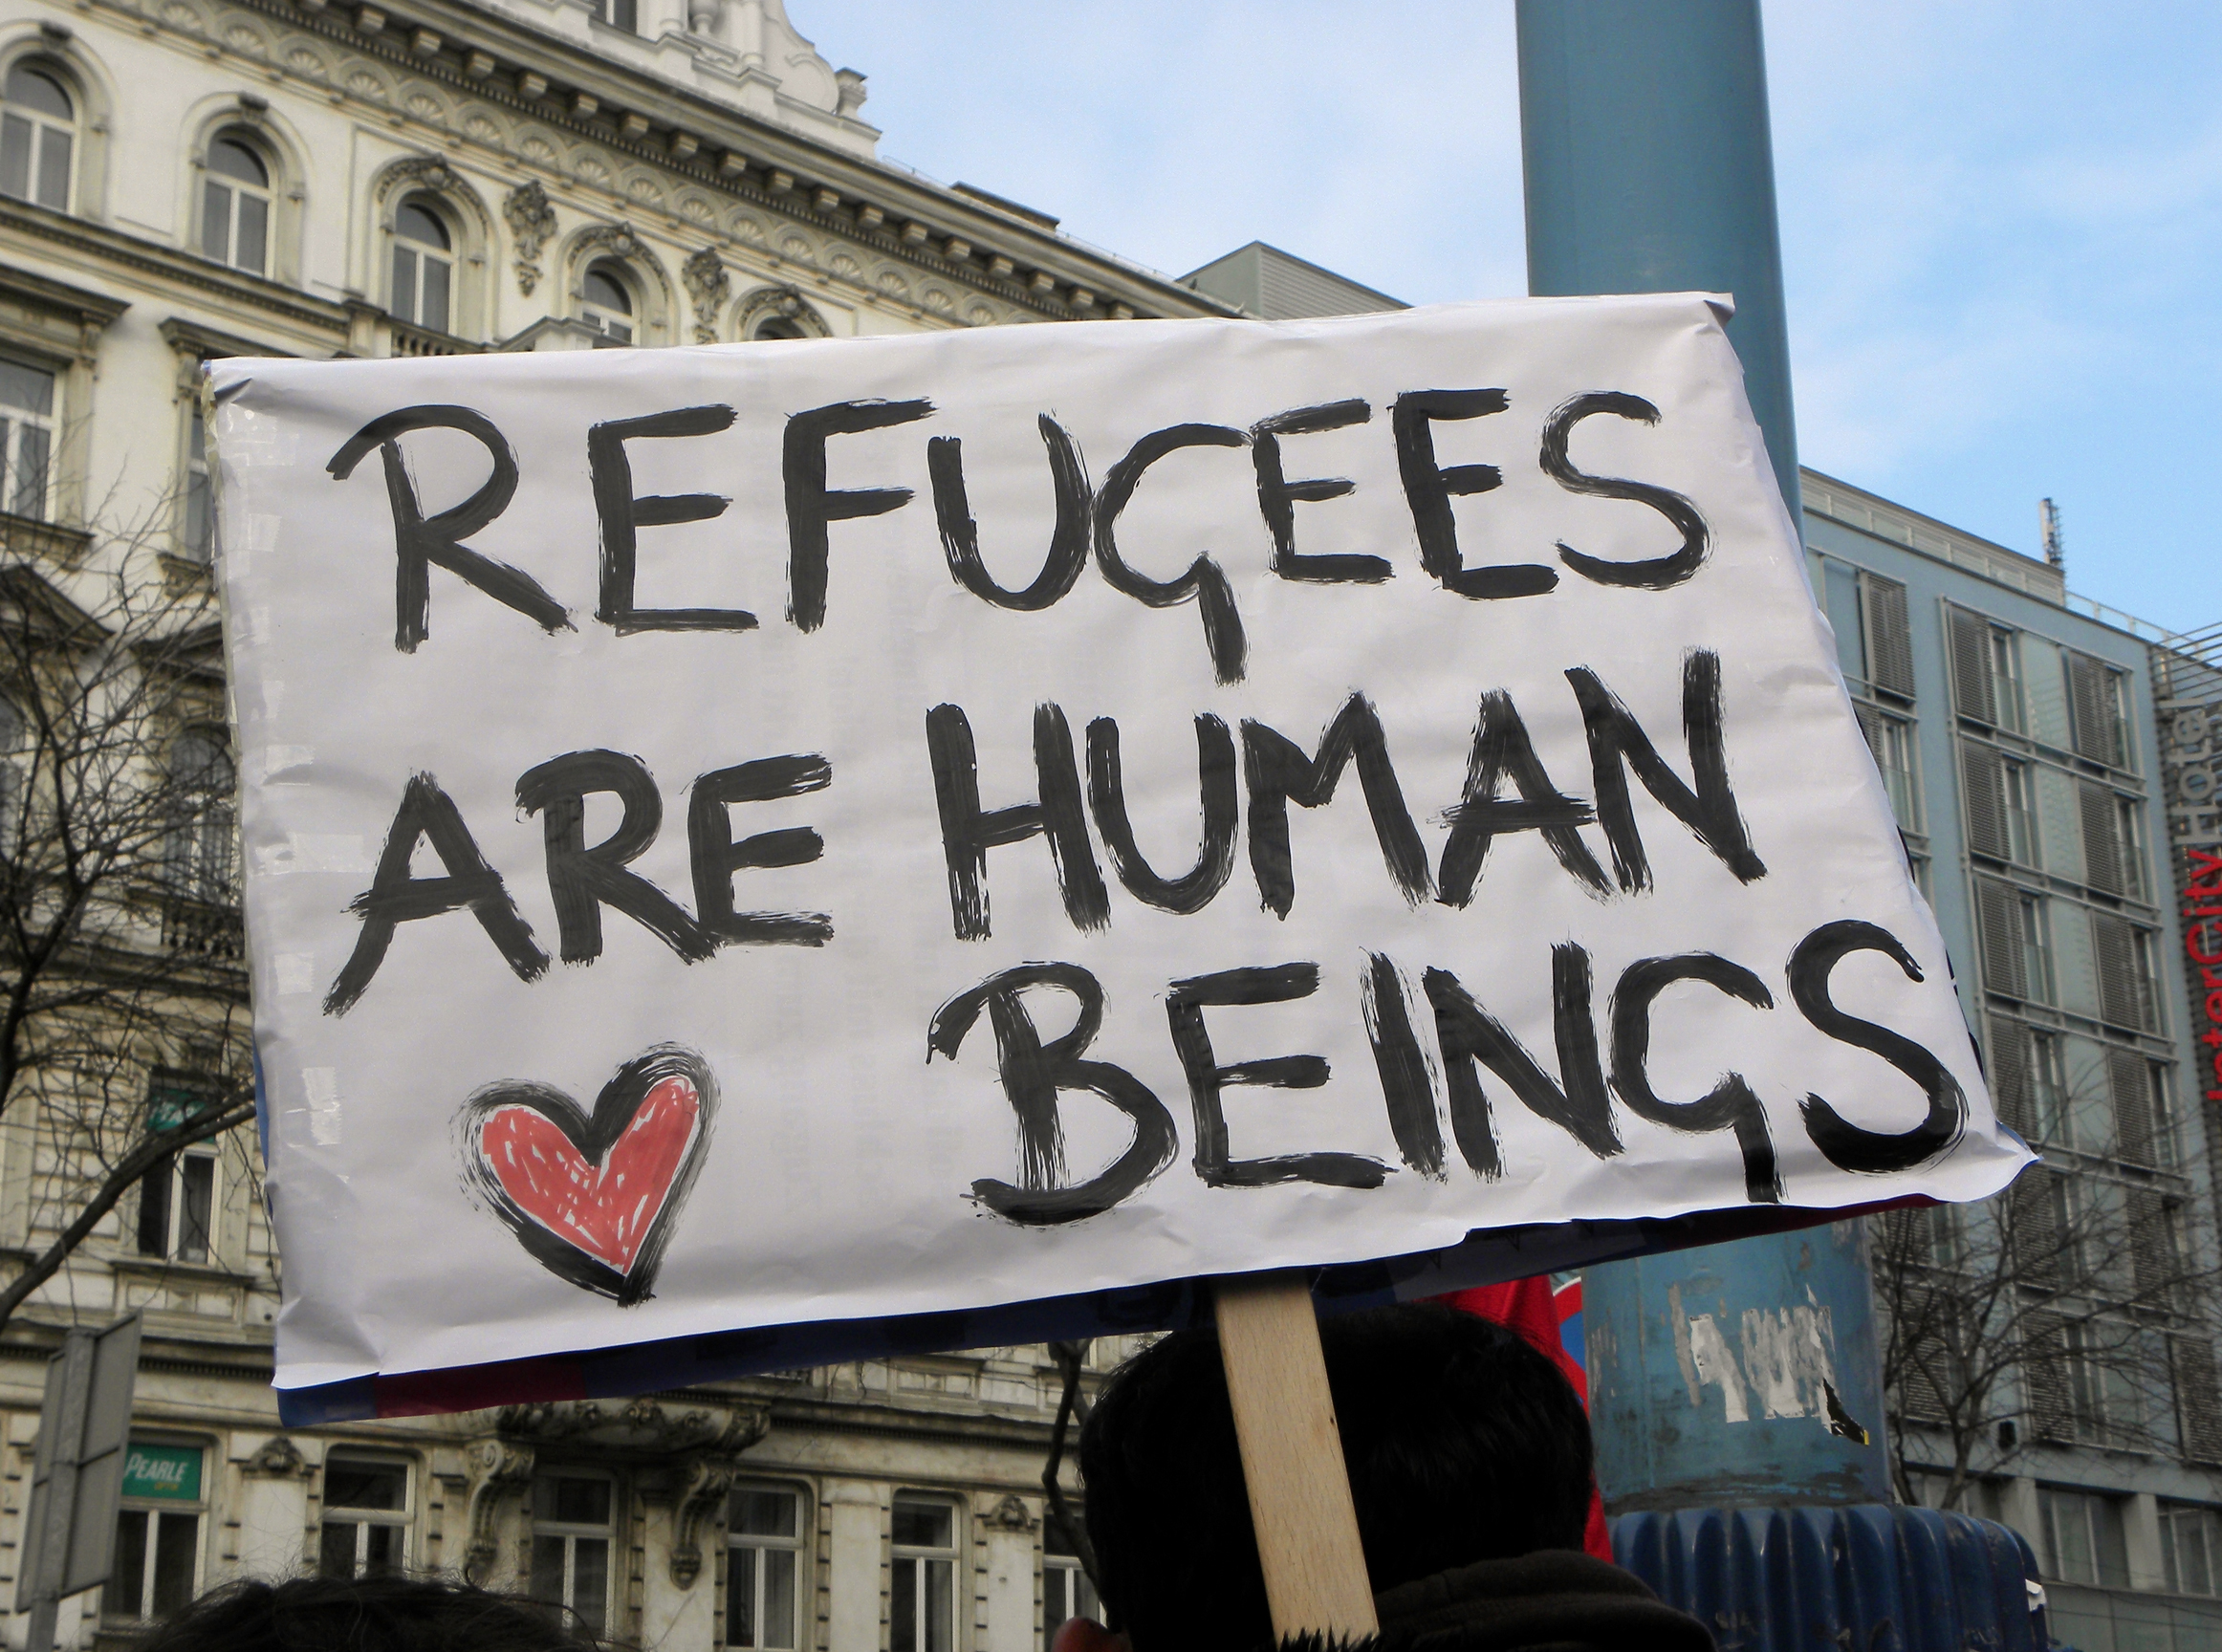 REFUGEES
ARE HUMAN
BEINGS
InterCityHotel
PEARLE